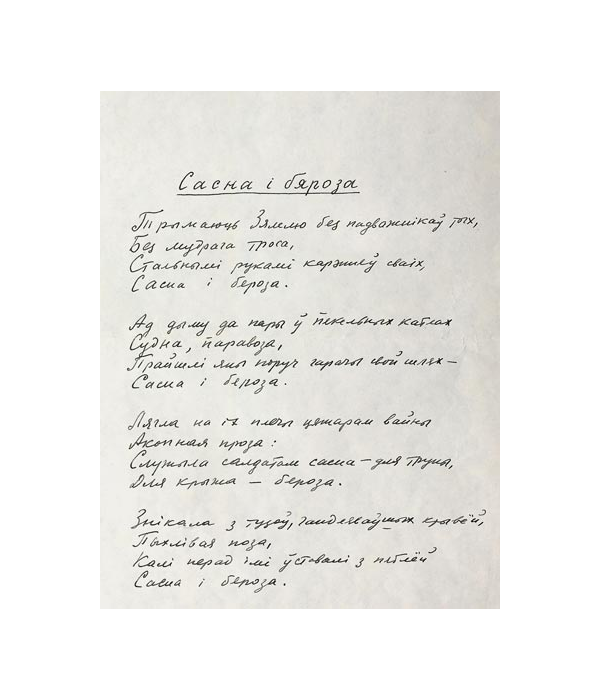 Сасна і бяроза
Трымаюць Зямлю без падважнікаў тых,
Без мудрага троса,
Стальнымі рукамі карэнняў сваіх,
Сасна і бяроза.
Ад дыму да пары ў пекельных катлах
Судна, паравоза,
Прайшлі яны поруч гарачы свой шлях —
Сасна і бяроза.
Лягла на іх плечы цяжарам вайны
Акопная проза:
Служыла салдатам сасна — для труны,
Для крыжа — бяроза.
Знікала з тузоў, гандляваўшых крывёй,
Пыхлівая поза,
Калі перад імі ўставалі з пятлёй
Сасна і бяроза.